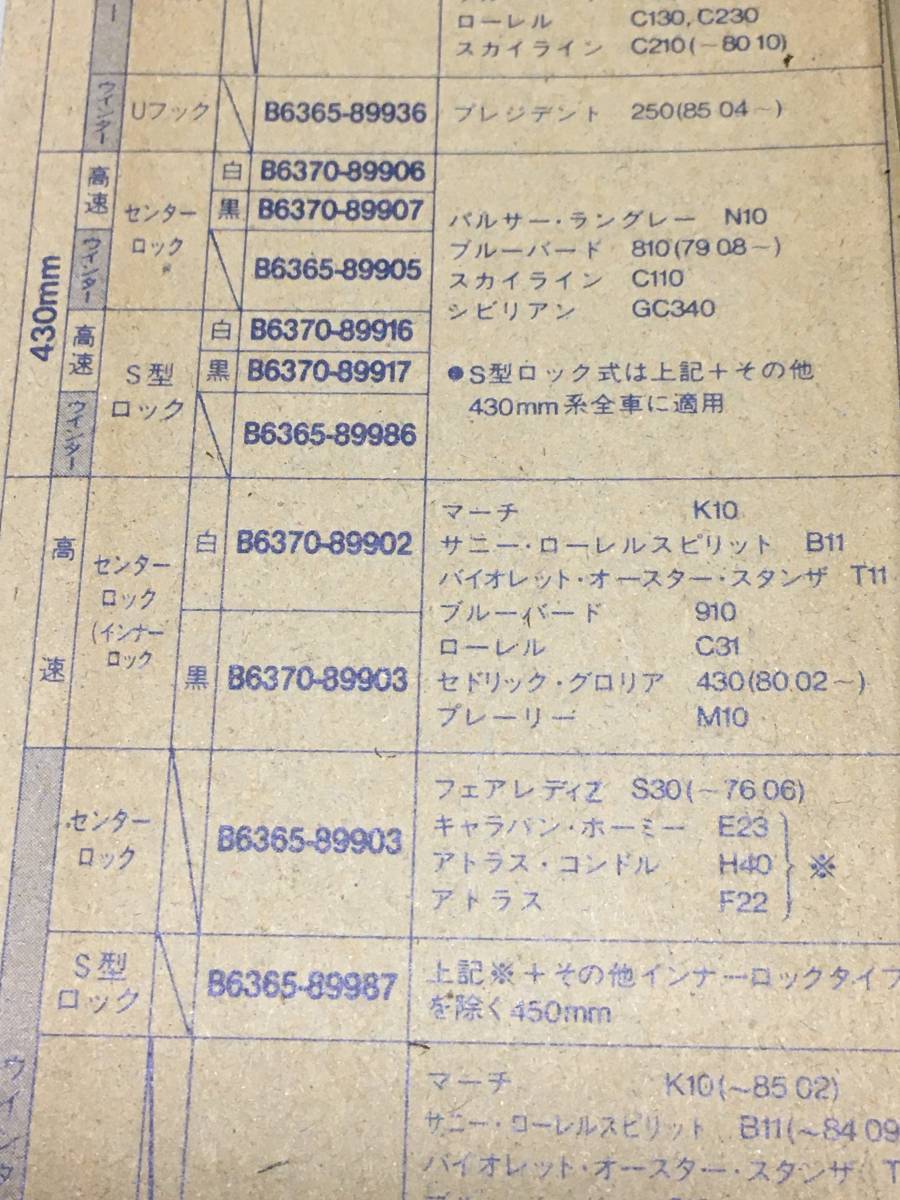 ー
ローレル C130, C230
スカイライン C210(～80 10)
ウインター
Uフック
B6365-89936
プレジデント 250(85 04～)
430mm
高速
センターロック
白 B6370-89906
黒 B6370-89907
ウインター
B6365-89905
パルサー・ラングレー N10
ブルーバード 810(79 08～)
スカイライン C110
シビリアン GC340
高速
S型ロック
白 B6370-89916
黒 B6370-89917
ウインター
B6365-89986
●S型ロック式は上記＋その他
430mm系全車に適用
高速
センター
ロック
(インナー
ロック
白 B6370-89902
黒 B6370-89903
マーチ K10
サニー・ローレルスピリット B11
バイオレット・オースター・スタンザ T11
ブルーバード 910
ローレル C31
セドリック・グロリア 430(80 02～)
プレーリー M10
センター
ロック
B6365-89903
フェアレディZ S30(～76 06)
キャラバン・ホーミー E23
アトラス・コンドル H40
アトラス F22
※
S型
ロック
B6365-89987
上記※＋その他インナーロックタイプ
を除く450mm
ウインタ
マーチ K10(～85 02)
サニー・ローレルスピリット B11(～84 09
バイオレット・オースター・スタンザ T